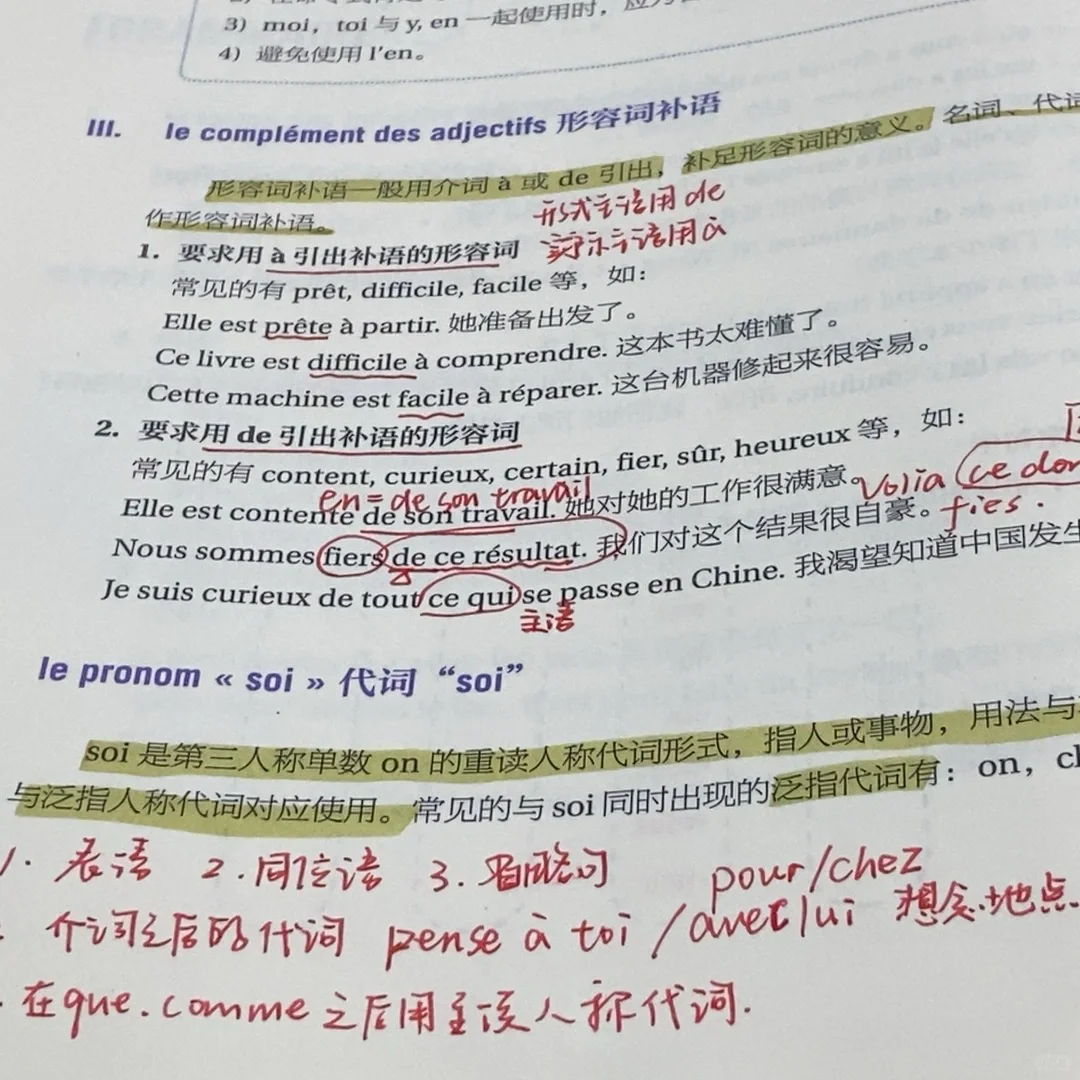 3) moi，toi 与 y, en 一起使用时，应
4) 避免使用 l'en。
III. le complément des adjectifs 形容词补语
形容词补语一般用介词 à 或 de 引出，补足形容词的意义。名词、代词
作形容词补语。
形式主语用 de
主语用 à
1. 要求用 à 引出补语的形容词
常见的有 prêt, difficile, facile 等，如：
Elle est prête à partir. 她准备出发了。
Ce livre est difficile à comprendre. 这本书太难懂了。
Cette machine est facile à réparer. 这台机器修起来很容易。
2. 要求用 de 引出补语的形容词
常见的有 content, curieux, certain, fier, sûr, heureux 等，如：
en = de son travail
Elle est contente de son travail. 她对她的工作很满意。
Volia ce don
fies.
Nous sommes fiers de ce résultat. 我们对这个结果很自豪。
Je suis curieux de tout ce qui se passe en Chine. 我渴望知道中国发生
主语
le pronom « soi » 代词 “soi”
soi 是第三人称单数 on 的重读人称代词形式，指人或事物，用法与
与泛指人称代词对应使用。常见的与 soi 同时出现的泛指代词有：on，
1. 表语 2. 同位语 3. 省略句
pour/chez
介词之后的代词 pense à toi /avec lui 想念.地点.
在que.comme 之后用重读人称代词.